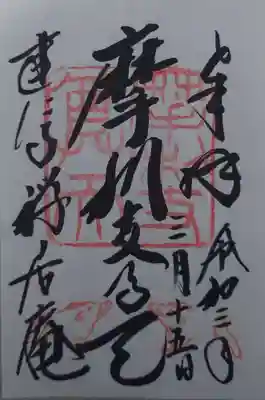 奉拝
令和三年
三月十五日
摩利支尊天
建仁寺禅居庵